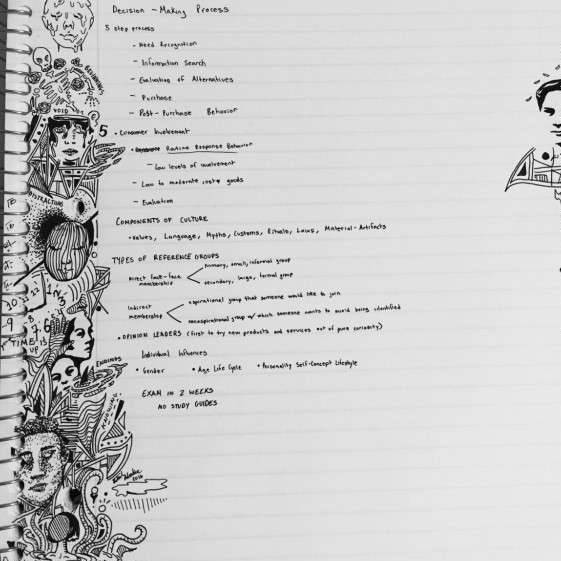 Decision-Making Process
5 step process
- Need Recognition
- Information Search
- Evaluation of Alternatives
- Purchase
- Post-Purchase Behavior
5 • Consumer Involvement
• Routine Response Behavior
- Low levels of involvement
- Low to moderate cost goods
- Evaluation
COMPONENTS OF CULTURE
• Values, Language, Myths, Customs, Rituals, Laws, Material-Artifacts
TYPES OF REFERENCE GROUPS
Direct face-face membership
primary, small, informal group
secondary, large, formal group
Indirect membership
aspirational group that someone would like to join
nonaspirational group w/ which someone wants to avoid being identified
• OPINION LEADERS (first to try new products and services out of pure curiosity)
Individual Influences
• Gender • Age Life Cycle • Personality Self-Concept Lifestyle
EXAM IN 2 WEEKS
NO STUDY GUIDES
BEGINNINGS
VOID
DISTRACTION
10 11 12 1
2
3
9
8
7 6
TIME IS
UP
ENDINGS